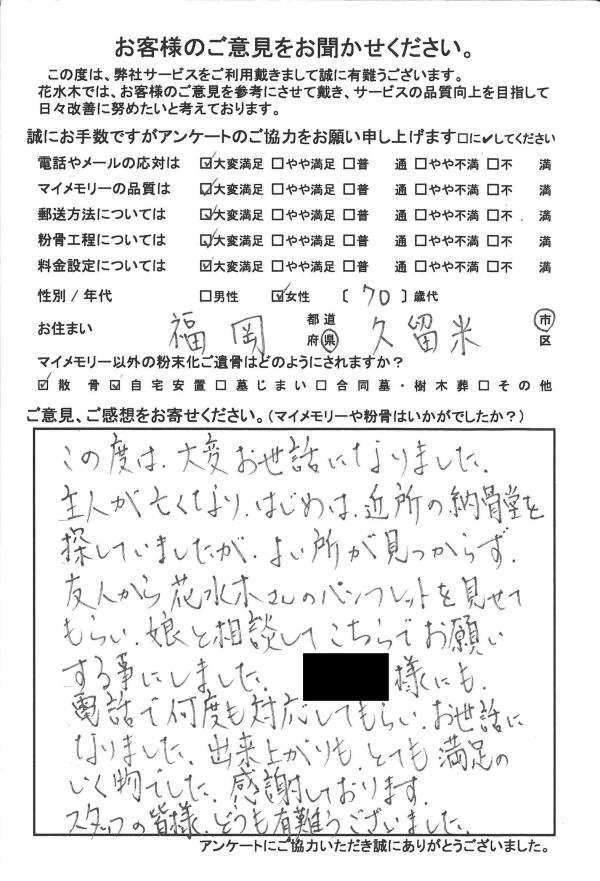 お客様のご意見をお聞かせください。
この度は、弊社サービスをご利用戴きまして誠に有難うございます。
花水木では、お客様のご意見を参考にさせて戴き、サービスの品質向上を目指して
日々改善に努めたいと考えております。
誠にお手数ですがアンケートのご協力をお願い申し上げます□に✔してください
電話やメールの応対は ☑大変満足 □やや満足 □普 通 □やや不満 □不 満
マイメモリーの品質は ☑大変満足 □やや満足 □普 通 □やや不満 □不 満
郵送方法については ☑大変満足 □やや満足 □普 通 □やや不満 □不 満
粉骨工程については ☑大変満足 □やや満足 □普 通 □やや不満 □不 満
料金設定については ☑大変満足 □やや満足 □普 通 □やや不満 □不 満
性別 / 年代 □男性 ☑女性 〔 70 〕歳代
お住まい 福岡 都道府県 久留米 市区
マイメモリー以外の粉末化ご遺骨はどのようにされますか？
☑散 骨 ☑自宅安置 □墓じまい □合同墓・樹木葬 □その他
ご意見、ご感想をお寄せください。（マイメモリーや粉骨はいかがでしたか？）
この度は、大変お世話になりました。
主人が亡くなり、はじめは、近所の納骨堂を
探していましたが、よい所が見つからず、
友人から花水木さんのパンフレットを見せて
もらい、娘と相談してこちらでお願い
する事にしました。 様にも、
電話で何度も対応してもらい、お世話に
なりました。出来上がりも、とても満足の
いく物でした。感謝しております。
スタッフの皆様、どうも有難うございました。
アンケートにご協力いただき誠にありがとうございました。